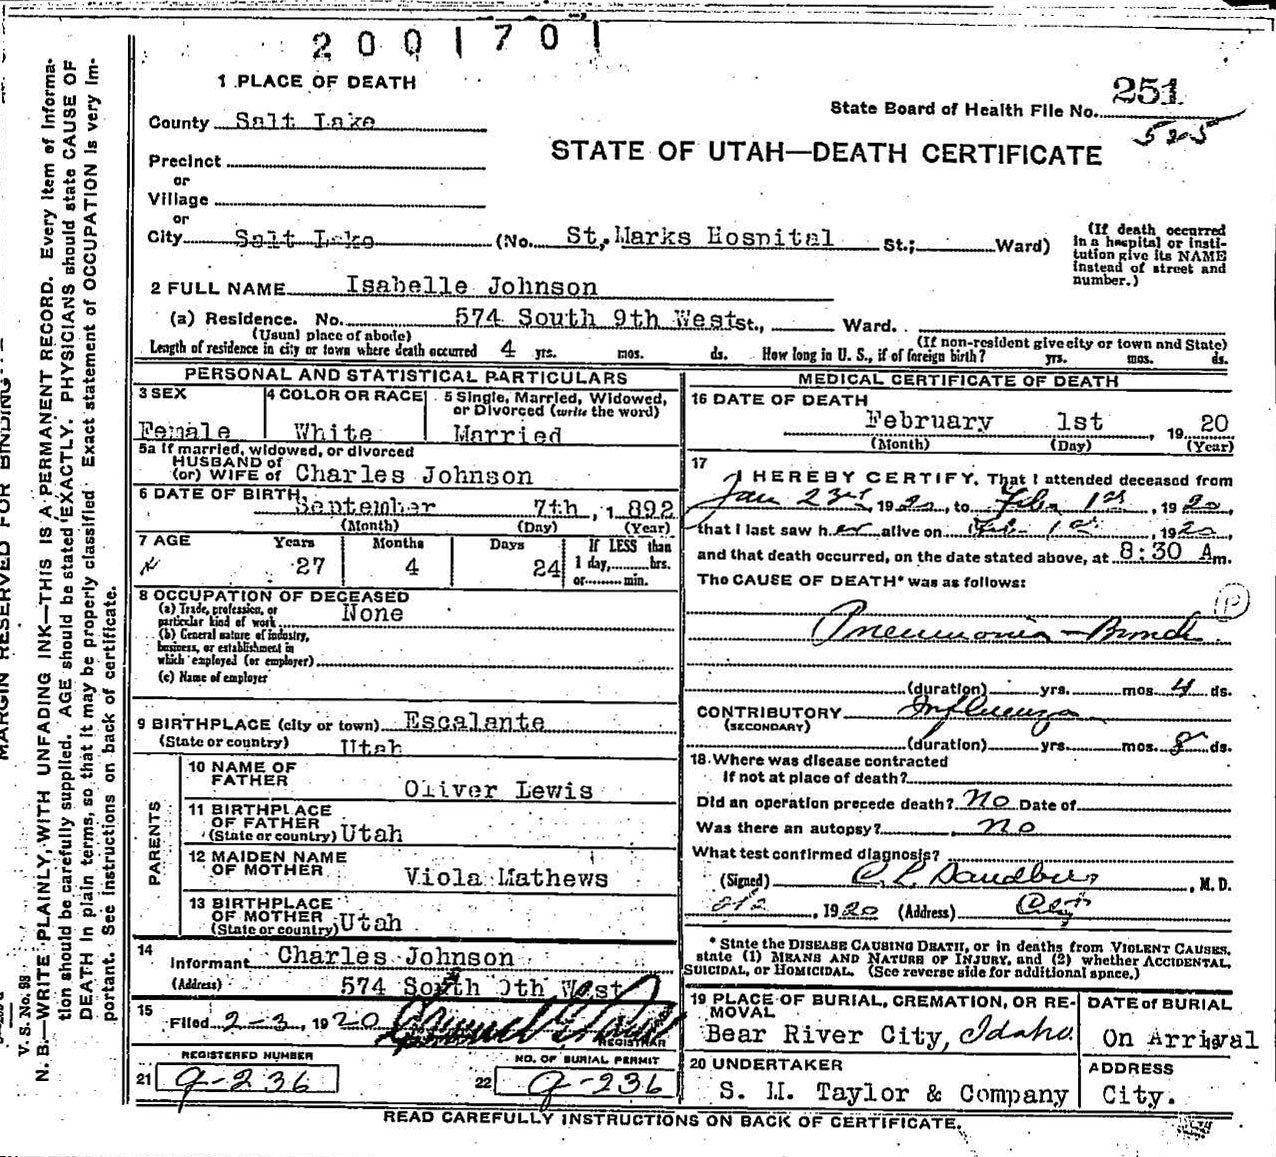 2001701
1 PLACE OF DEATH
State Board of Health File No. 251
525
County Salt Lake
STATE OF UTAH—DEATH CERTIFICATE
Precinct
or
Village
or
City Salt Lake (No. St. Marks Hospital St.; Ward)
(If death occurred in a hospital or institution give its NAME instead of street and number.)
2 FULL NAME Isabelle Johnson
(a) Residence. No. 574 South 9th West St., Ward.
(Usual place of abode) (If non-resident give city or town and State)
Length of residence in city or town where death occurred 4 yrs. mos. ds. How long in U. S., if of foreign birth? yrs. mos. ds.
PERSONAL AND STATISTICAL PARTICULARS
3 SEX 4 COLOR OR RACE 5 Single, Married, Widowed,
or Divorced (write the word)
Female White Married
5a If married, widowed, or divorced
HUSBAND of
(or) WIFE of Charles Johnson
6 DATE OF BIRTH, September 7th, 1892
(Month) (Day) (Year)
7 AGE Years Months Days If LESS than
27 4 24 1 day, hrs.
or min.
8 OCCUPATION OF DECEASED
(a) Trade, profession, or
particular kind of work None
(b) General nature of industry,
business, or establishment in
which employed (or employer)
(c) Name of employer
9 BIRTHPLACE (city or town) Escalante
(State or country) Utah
PARENTS
10 NAME OF
FATHER Oliver Lewis
11 BIRTHPLACE
OF FATHER
(State or country) Utah
12 MAIDEN NAME
OF MOTHER Viola Mathews
13 BIRTHPLACE
OF MOTHER
(State or country) Utah
14 Informant Charles Johnson
(Address) 574 South 9th West
15 Filed 2-3, 1920
REGISTRAR
REGISTERED NUMBER NO. OF BURIAL PERMIT
21 9-236 22 9-236
MEDICAL CERTIFICATE OF DEATH
16 DATE OF DEATH
February 1st, 1920
(Month) (Day) (Year)
17
I HEREBY CERTIFY, That I attended deceased from
Jan 23rd, 1920, to Feb. 1st, 1920,
that I last saw her alive on Feb 1st, 1920,
and that death occurred, on the date stated above, at 8:30 Am.
The CAUSE OF DEATH* was as follows:
P
Pneumonia - Bronch
(duration) yrs. mos. 4 ds.
CONTRIBUTORY Influenza
(SECONDARY)
(duration) yrs. mos. 8 ds.
18 Where was disease contracted
if not at place of death?
Did an operation precede death? No Date of
Was there an autopsy? no
What test confirmed diagnosis?
(Signed) , M. D.
2/2, 1920 (Address) City
* State the DISEASE CAUSING DEATH, or in deaths from VIOLENT CAUSES,
state (1) MEANS AND NATURE OF INJURY, and (2) whether ACCIDENTAL,
SUICIDAL, or HOMICIDAL. (See reverse side for additional space.)
19 PLACE OF BURIAL, CREMATION, OR RE- DATE of BURIAL
MOVAL
Bear River City, Idaho. On Arrival
20 UNDERTAKER ADDRESS
S. M. Taylor & Company City.
READ CAREFULLY INSTRUCTIONS ON BACK OF CERTIFICATE.
MARGIN RESERVED FOR BINDING
V. S. No. 98
N. B.—WRITE PLAINLY, WITH UNFADING INK—THIS IS A PERMANENT RECORD. Every item of Informa-
tion should be carefully supplied. AGE should be stated EXACTLY. PHYSICIANS should state CAUSE OF
DEATH in plain terms, so that it may be properly classified. Exact statement of OCCUPATION is very im-
portant. See instructions on back of certificate.